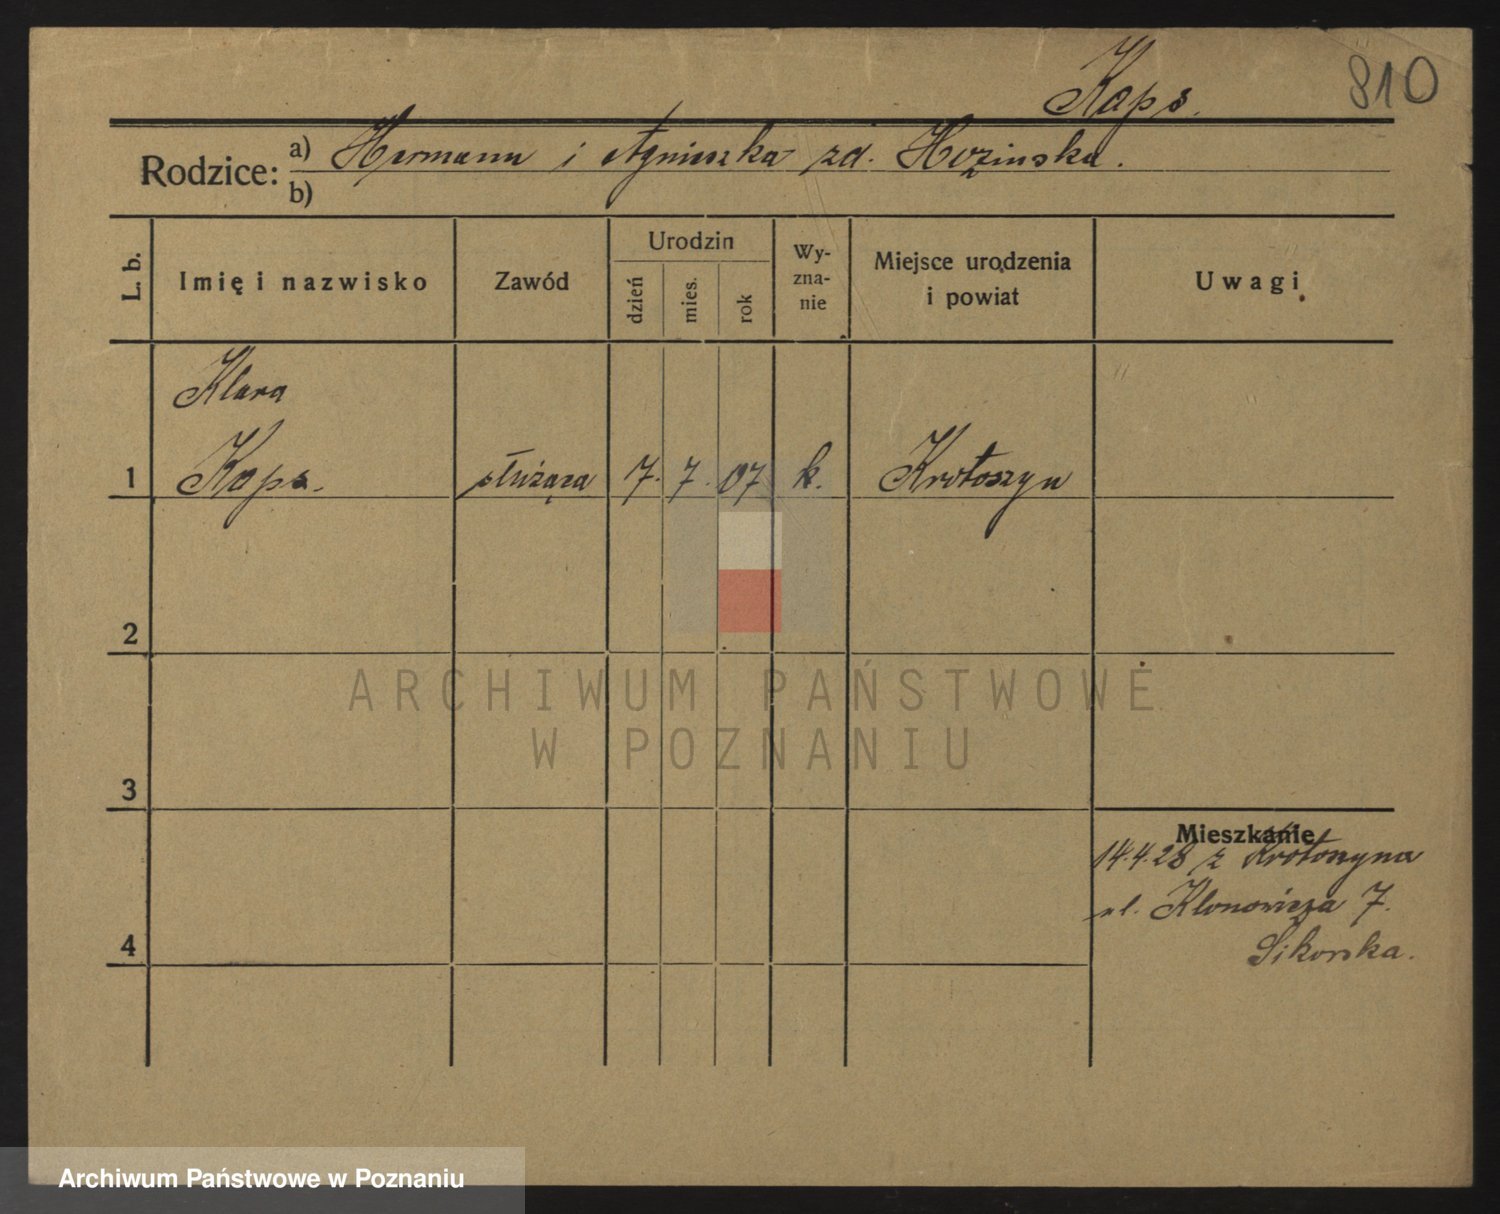 Kaps.
810
Rodzice: a) Hermann i Agnieszka zd. Hozinska.
b)
L. b.
Imię i nazwisko
Zawód
Urodzin
dzień
mies.
rok
Wy-
zna-
nie
Miejsce urodzenia
i powiat
Uwagi
Klara
1 Kaps. służąca 7. 7. 07 k. Krotoszyn
2
ARCHIWUM PAŃSTWOWE
W POZNANIU
3
Mieszkanie
14.4.28 z Krotoszyna
ul. Klonowicza 7.
Sikorska.
4
Archiwum Państwowe w Poznaniu